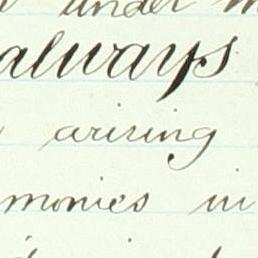 under
always
arising
monies in